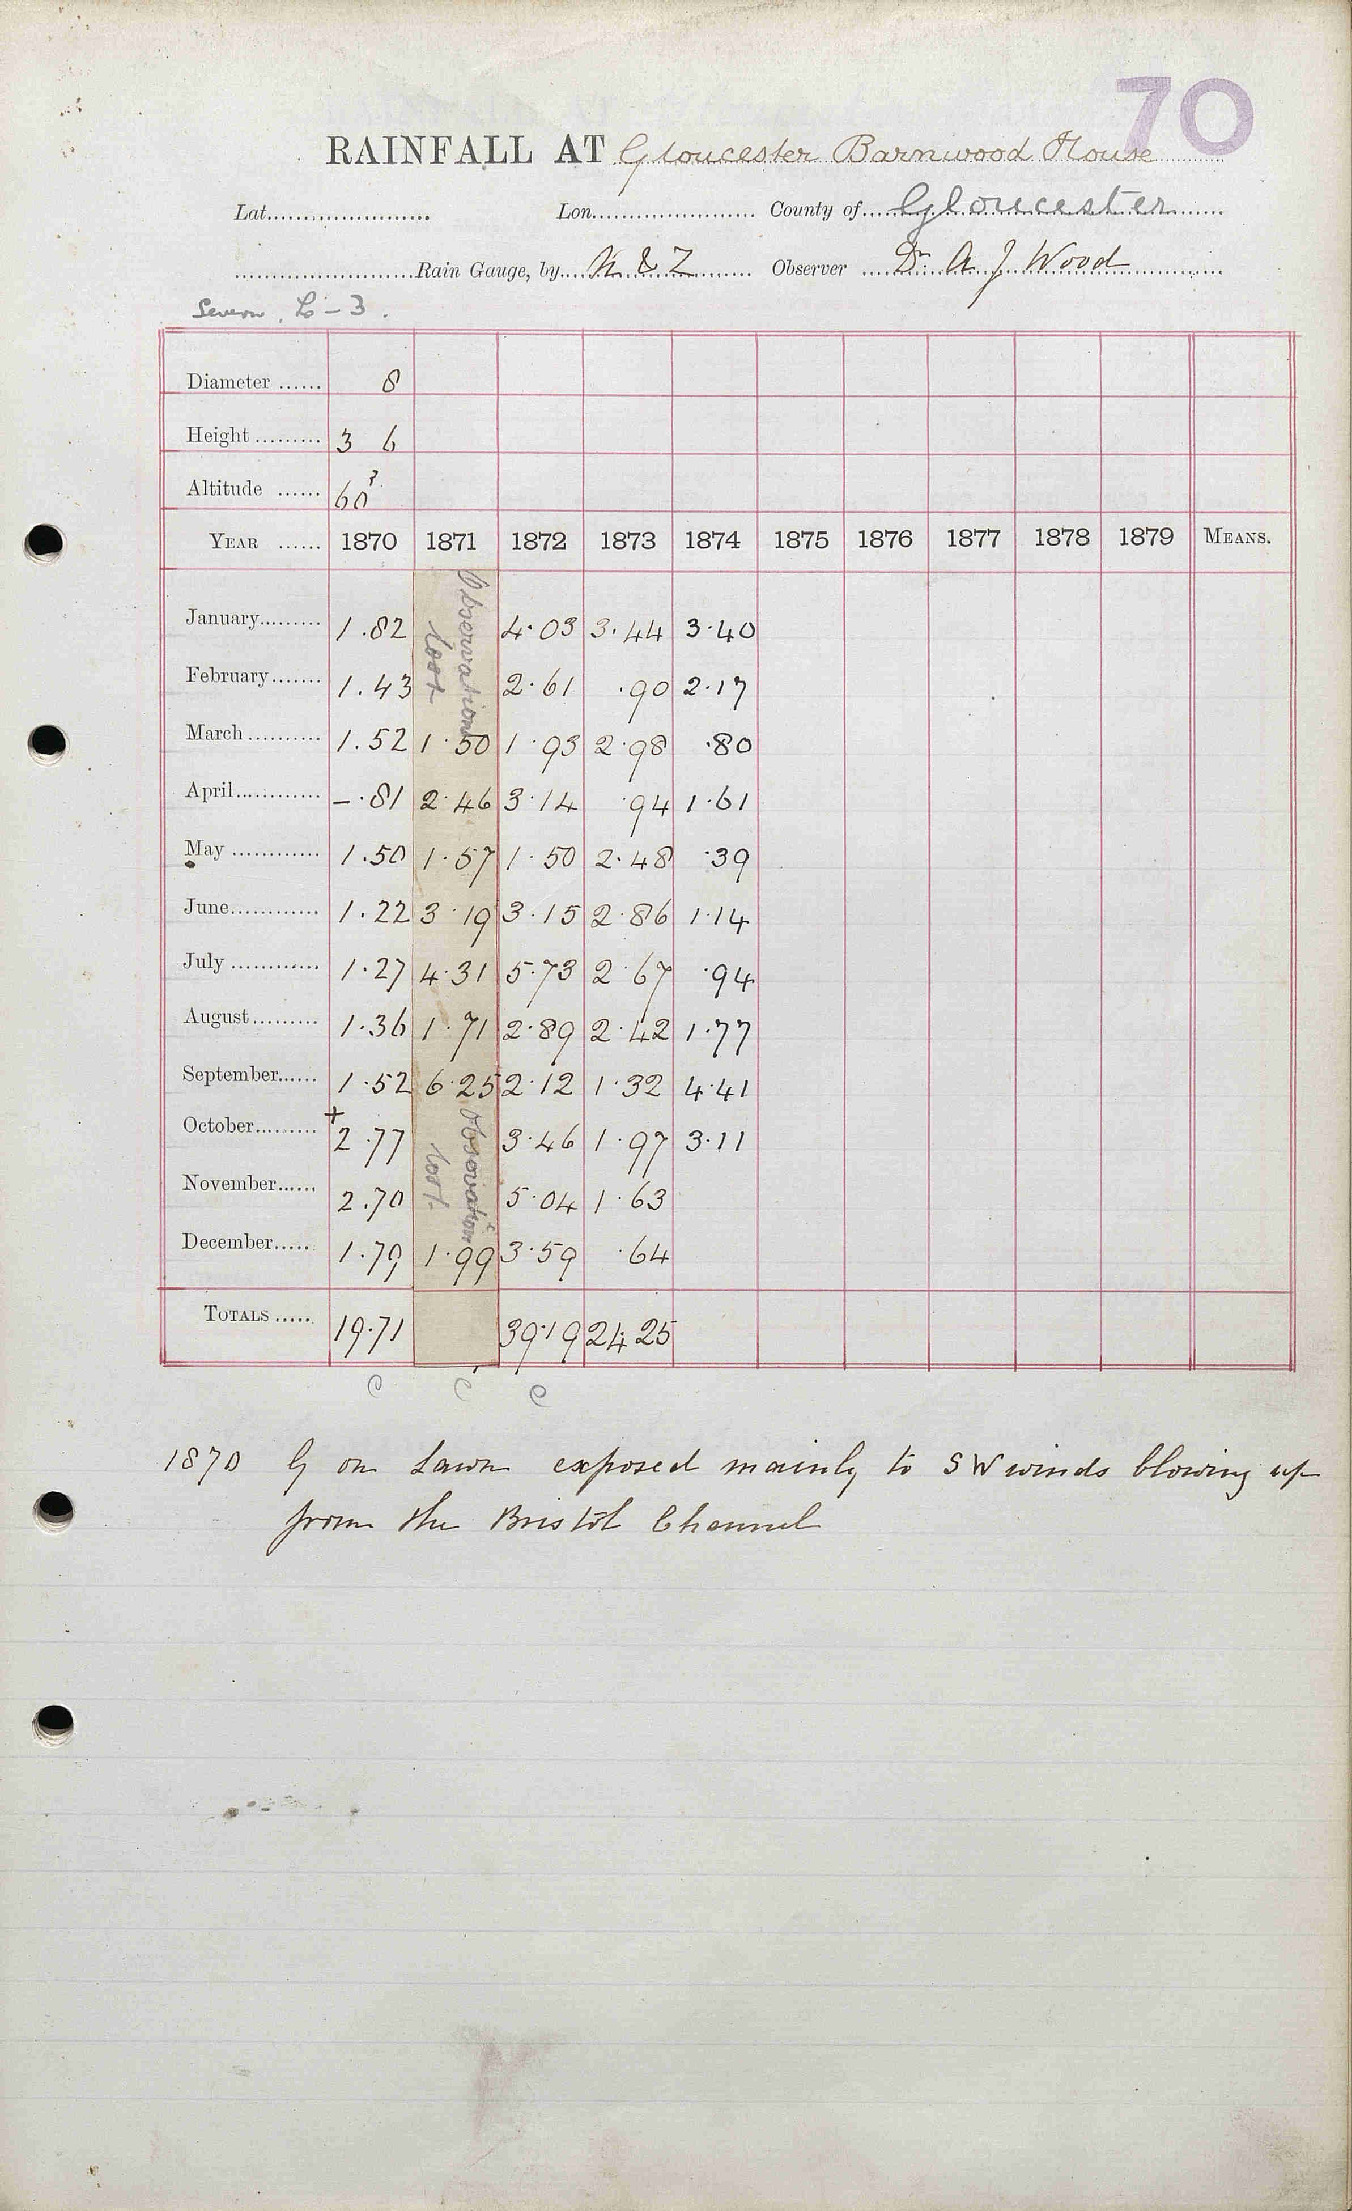 70
RAINFALL AT Gloucester Barnwood House
Lat...................... Lon...................... County of.... Gloucester
........................Rain Gauge, by.... N & Z Observer .... Dr. A J Wood
Severn. L-3.
Diameter ...... 8
Height ......... 3 6
Altitude ...... 60?
YEAR ...... 1870 1871 1872 1873 1874 1875 1876 1877 1878 1879 MEANS.
Observation lost
January......... 1.82 4.03 3.44 3.40
February....... 1.43 2.61 .90 2.17
March .......... 1.52 1.50 1.93 2.98 .80
April............ -.81 2.46 3.14 .94 1.61
May ............ 1.50 1.57 1.50 2.48 .39
June............ 1.22 3.19 3.15 2.86 1.14
July ............ 1.27 4.31 5.73 2.67 .94
August......... 1.36 1.71 2.89 2.42 1.77
September...... 1.52 6.25 2.12 1.32 4.41
Observation lost
October......... +2.77 3.46 1.97 3.11
November...... 2.70 5.04 1.63
December..... 1.79 1.99 3.59 .64
TOTALS ..... 19.71 39.19 24.25
c c c
1870 G on Lawn exposed mainly to SW winds blowing up
from the Bristol Channel